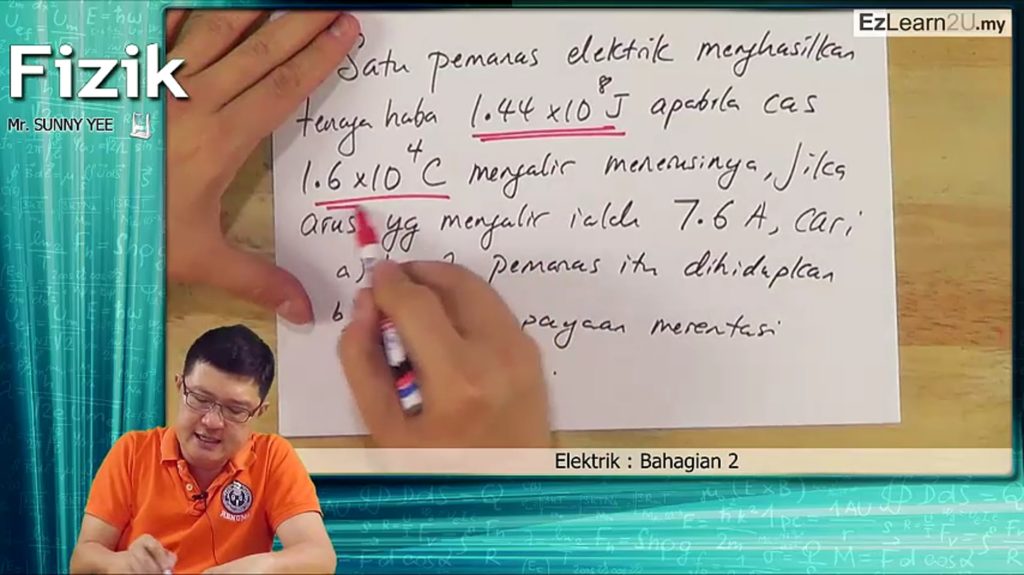 EzLearn2U.my
Fizik
Mr. SUNNY YEE
Satu pemanas elektrik menghasilkan
tenaga haba 1.44 x10⁸J apabila cas
1.6 x10⁴C mengalir menerusinya, Jika
arus yg mengalir ialah 7.6 A, cari
a) pemanas itu dihidupkan
b payaan merentasi
Elektrik : Bahagian 2